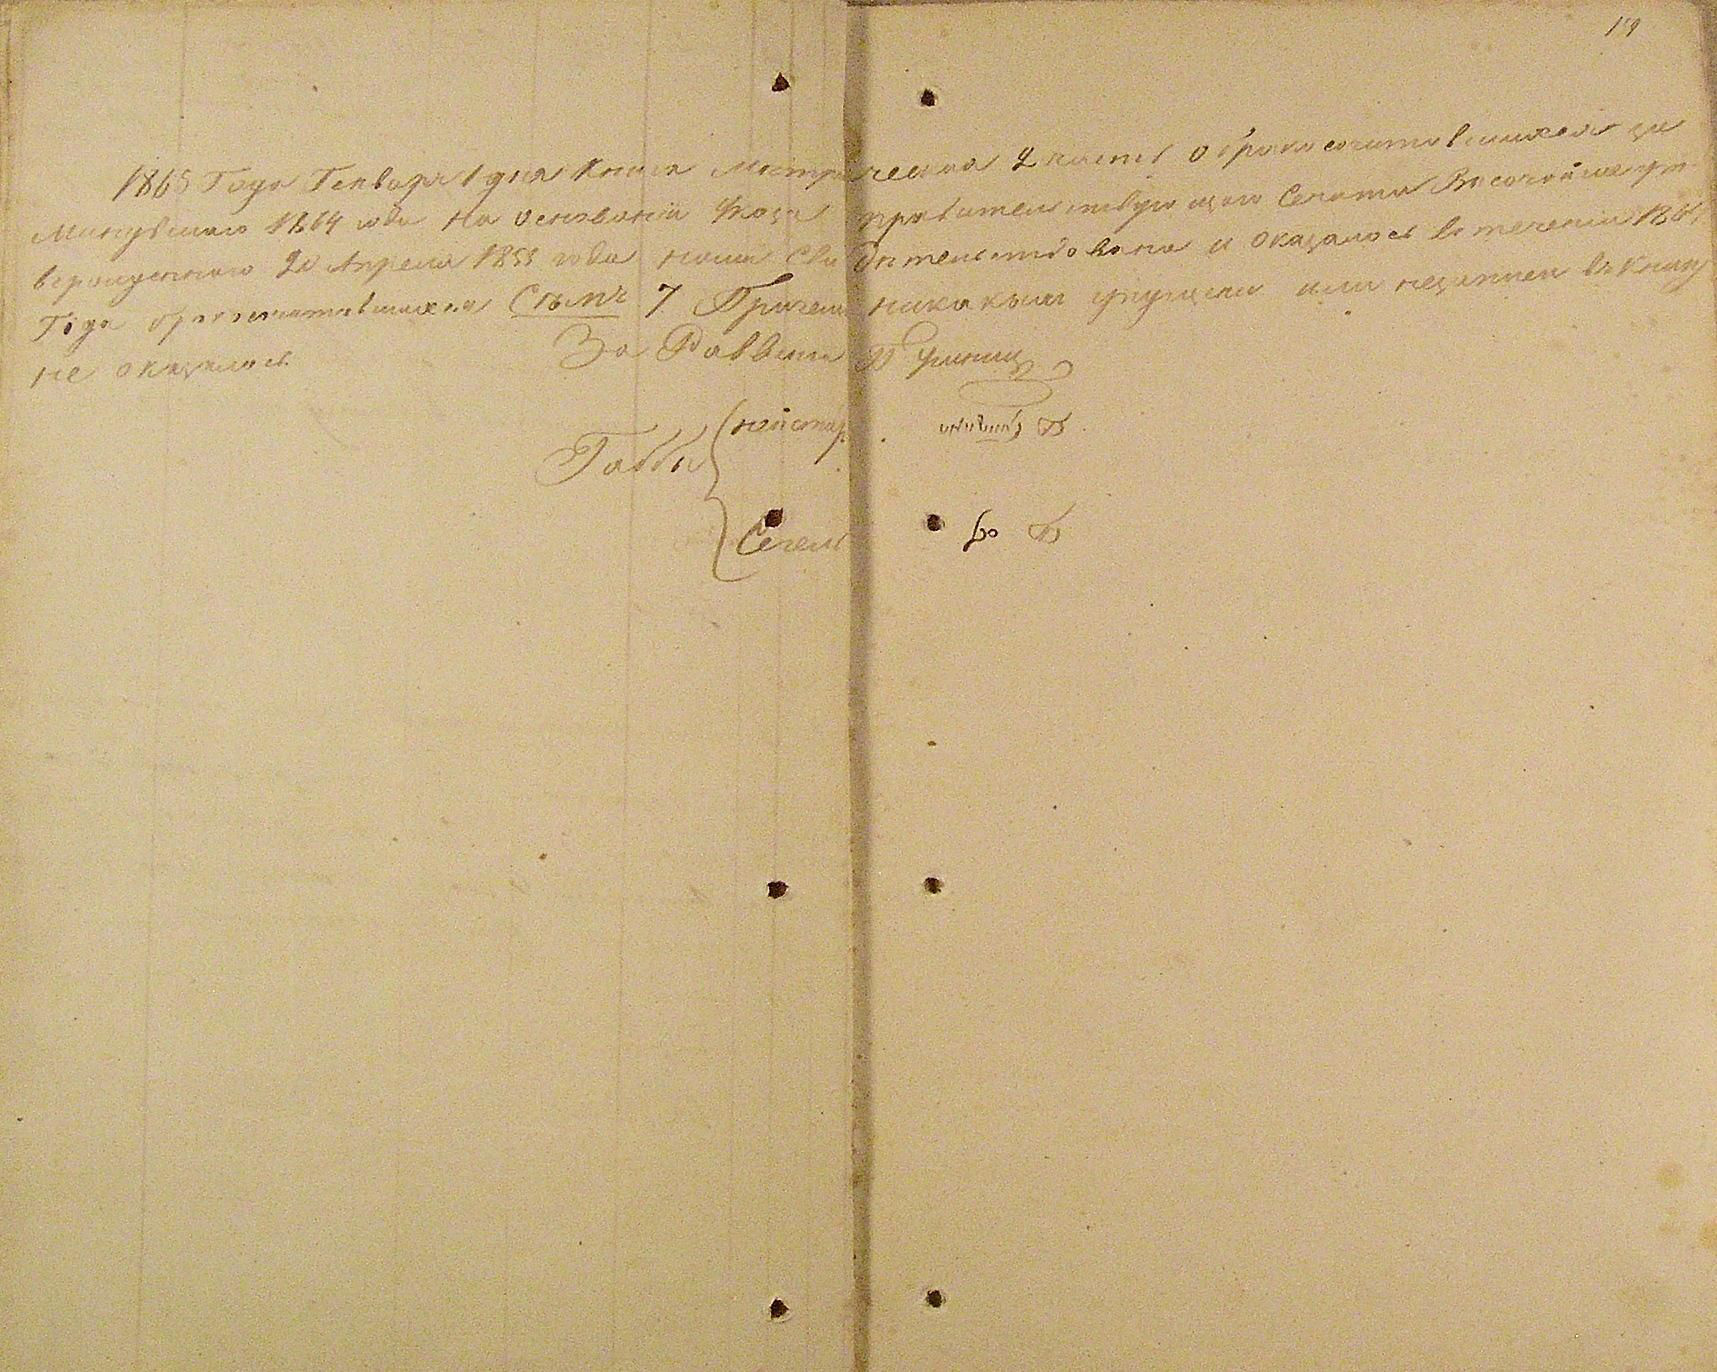 19
1865 Года Генваря 1 дня Книга Метрическая 2 часть о бракосочитавшихся за
минувшаго 1864 года на основании Указа правительствующаго Сената Высочайше ут-
вержденнаго 20 Апреля 1855 года нами Свидетельствована и оказалось в течении 1864
Года бракосочитавшихся Семь 7 Причем никаким упущении или незаписи в Книгу
не оказалось
За Раввина
Габбы
Сегель